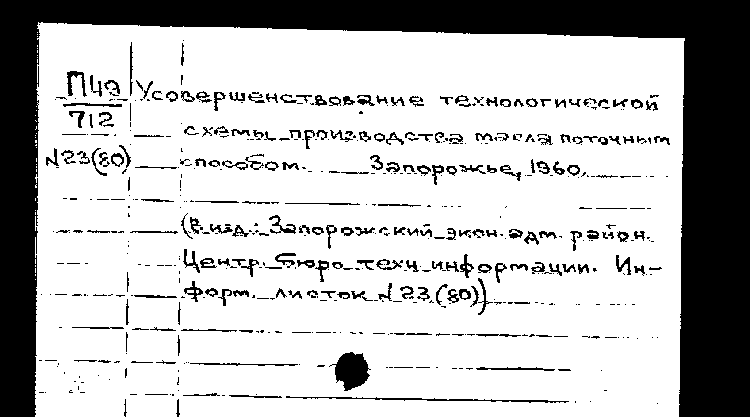 П49 Усовершенствование технологической
712
схемы производства масла поточным
N23(80) способом. Запорожье, 1960.
(В изд.: Запорожский экон. адм. район.
Центр. бюро техн. информации. Ин-
форм. листок N23(80))